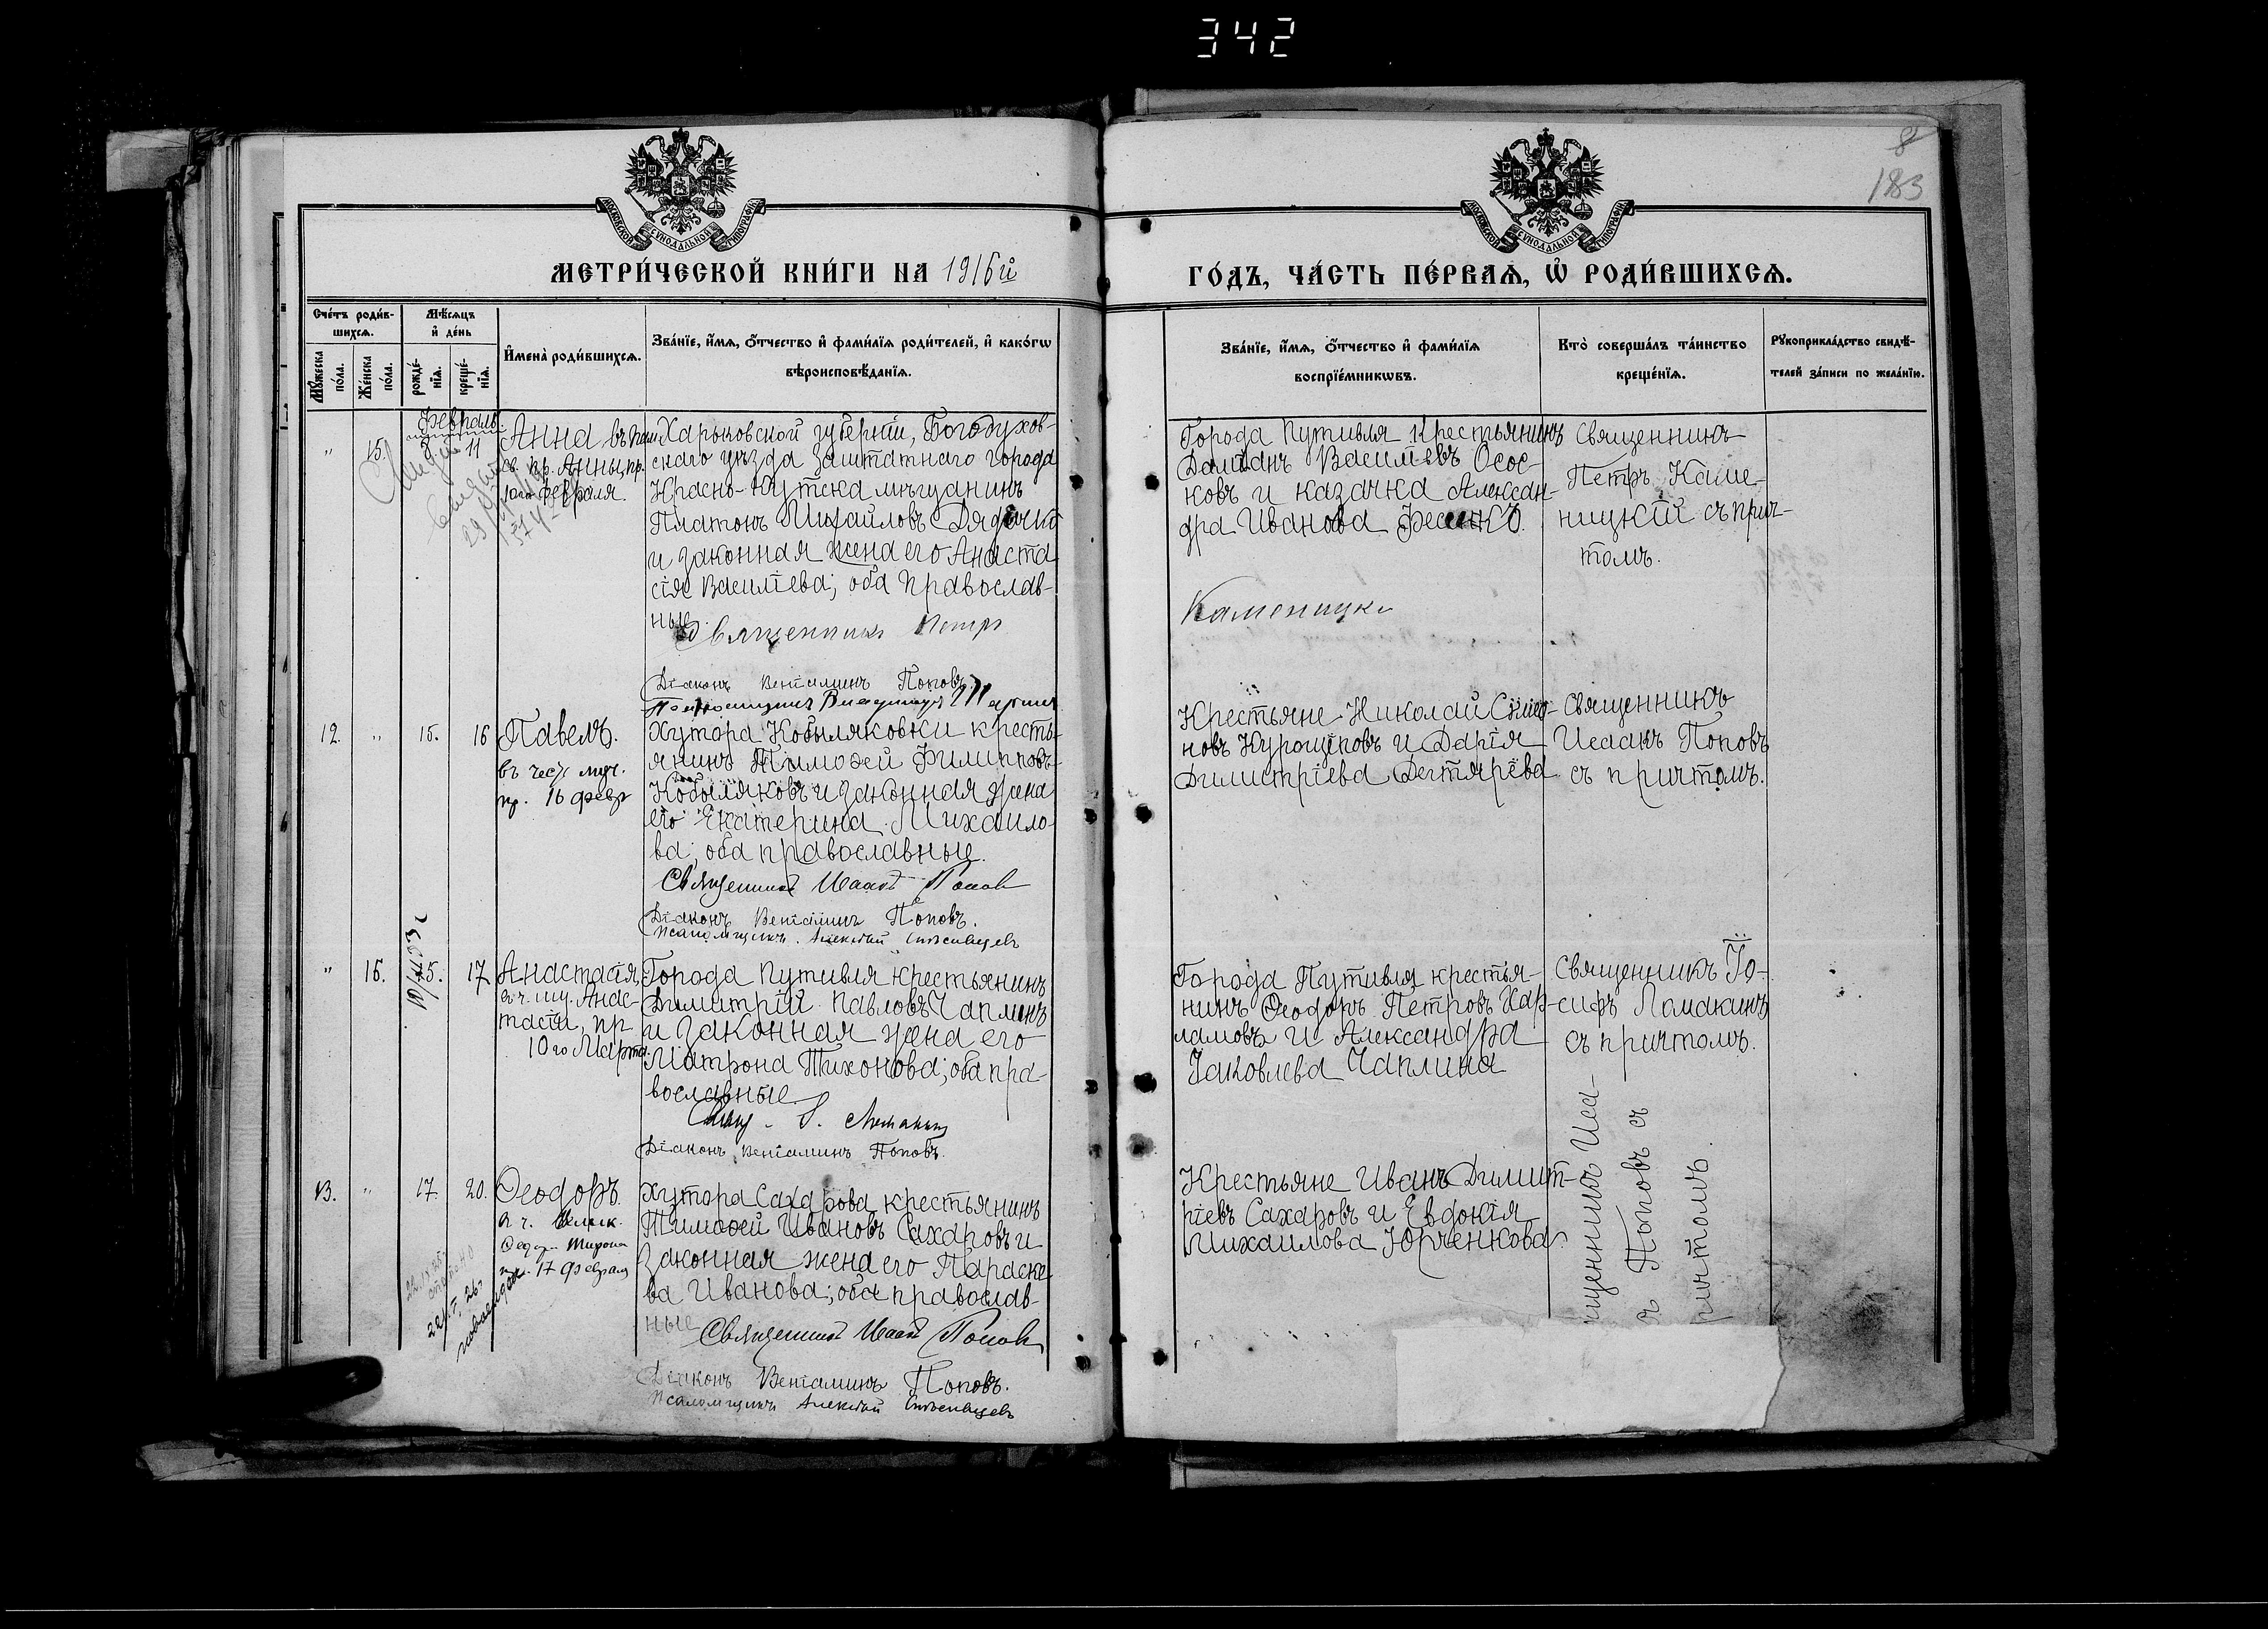 342
8
183
МОСКОВСКОЙ СѴНОДАЛЬНОЙ ТИПОГРАФІИ
МОСКОВСКОЙ СѴНОДАЛЬНОЙ ТИПОГРАФІИ
МЕТРИ́ЧЕСКОЙ КНИ́ГИ НА 1916й
ГО́ДЪ, ЧА́СТЬ ПЕ́РВАѦ, Ѡ҆ РОДИ́ВШИХСѦ.
Сче́тъ роди́в-
шихсѧ.
Мꙋ́жеска
по́ла.
Же́нска
по́ла.
Мѣ́сѧцъ
и҆ де́нь
рожде́-
нїѧ.
креще́-
нїѧ.
И҆мена̀ роди́вшихсѧ.
Зва́нїе, и҆́мѧ, ѻ҆́тчество и҆ фами́лїѧ роди́телей, и҆ како́гѡ
вѣроисповѣ́данїѧ.
Зва́нїе, и҆́мѧ, ѻ҆́тчество и҆ фами́лїѧ
воспрїе́мникѡвъ.
Кто̀ соверша́лъ та́инство
креще́нїѧ.
Рꙋкоприкла́дство свидѣ́-
телей за́писи по жела́нїю.
Февраль.
" 15. 11
Анна, въ
св. пр. Анны, пр.
февраля.
Харьковской губерніи, Богодухов-
скаго уѣзда заштатнаго города
Красно-Кутска мѣщанинъ
Платонъ Михайловъ
и законная жена его Анаста
сія Василіева; оба православ-
ные.
Священникъ Петръ
Діаконъ Веніаминъ Поповъ.
Города Путивля Крестьянинъ
Даміанъ Василіевъ Осос-
ковъ и казачка Алексан-
дра Иванова
Каменицкій
Священникъ
Петръ Каме-
ницкій съ прич-
томъ.
12. " 15. 16
Павелъ.
въ честь муч.
пр. 16 февр
Хутора Кобыляковки кресть-
янинъ Тимоѳей Филипповъ
Кобыляковъ и законная жена
его Екатерина Михаило-
ва; оба православные.
Священникъ Исаакъ Поповъ
Діаконъ Веніаминъ Поповъ.
Псаломщикъ Алексѣй
Крестьяне Николай Симео-
новъ Курощеповъ и Дарія
Димитріева Дегтярева
Священникъ
Исаакъ Поповъ
съ причтомъ.
" 16. 15. 17
Анастасія,
въ ч. муч. Анас-
тасіи, пр
10го Марта.
Города Путивля крестьянинъ
Димитрій Павловъ Чаплинъ
и законная жена его
Матрона Тихонова; оба пра-
вославные.
Свящ. І. Ломакинъ
Діаконъ Веніаминъ Поповъ.
Города Путивля крестья-
нинъ Ѳеодоръ Петровъ Хар-
ламовъ и Александра
Іаковлева Чаплина
Священникъ Іо-
сифъ Ломакинъ
съ причтомъ.
13. " 17. 20.
Ѳеодоръ.
в ч. велик.
Ѳеодора Тирона
пр. 17 Февраля
Хутора Сахарова крестьянинъ
Тимоѳей Ивановъ Сахаровъ и
законная жена его Параске-
ва Иванова; оба православ-
ные
Священникъ Исаакъ Поповъ
Діаконъ Веніаминъ Поповъ.
Псаломщикъ Алексѣй
Крестьяне Иванъ Димит-
ріевъ Сахаровъ и Евдокія
Михаилова Юрченкова.
щенникъ Иса-
ъ Поповъ съ
ричтомъ.